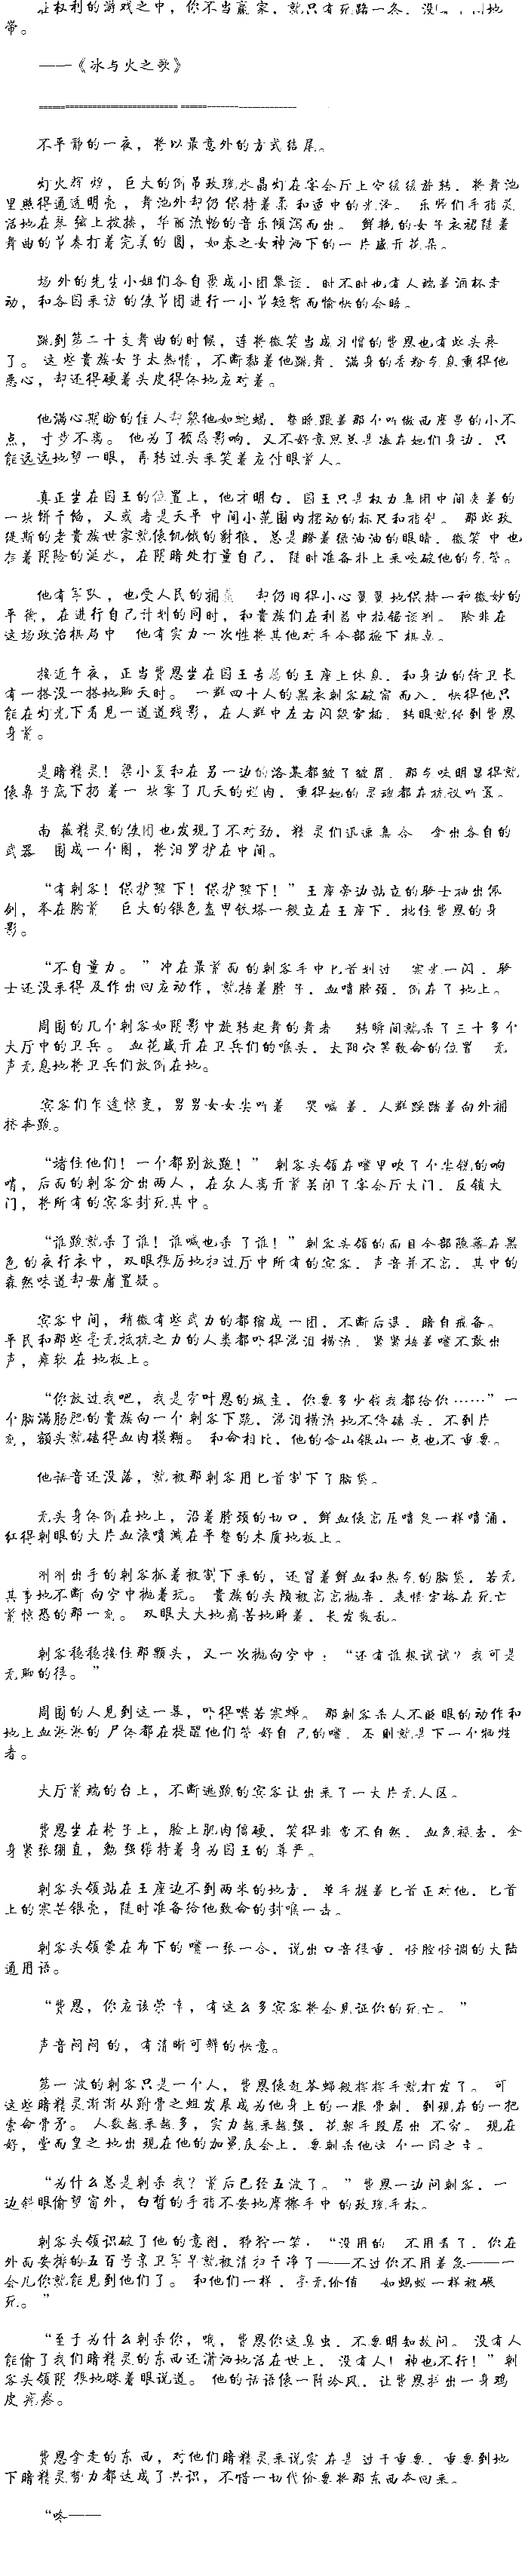 在权利的游戏之中，你不当赢家，就只有死路一条，没
带。
——《冰与火之歌》
不平静的一夜，将以最意外的方式结尾。
灯火辉煌，巨大的倒吊玫瑰水晶灯在宴会厅上空缓缓旋转，将舞池
里照得通透明亮，舞池外却仍保持着柔和适中的光泽。乐师们手指灵
活地在琴弦上拨揍，华丽流畅的音乐倾泻而出。鲜艳的女子衣裙随着
舞曲的节奏打着完美的圆，如春之女神洒下的一片盛开花朵。
场外的先生小姐们各自聚成小团攀谈，时不时也有人端着酒杯走
动，和各国来访的使节团进行一小节短暂而愉快的会晤。
跳到第二十支舞曲的时候，连将微笑当成习惯的费恩也有些头疼
了。这些贵族女子太热情，不断黏着他跳舞，满身的香粉气息熏得他
恶心，却还得硬着头皮得体地应对着。
他满心期盼的佳人却躲他如蛇蝎，整晚跟着那个叫做西座吕的小不
点，寸步不离。他为了顾忌影响，又不好意思总是凑在她们身边，只
能远远地望一眼，再转过头来笑着应付眼前人。
真正坐在国王的位置上，他才明白，国王只是权力集团中间夹着的
一块饼干馅，又或者是天平中间小范围内摆动的标尺和指针。那些玫
缇斯的老贵族世家就像饥饿的豺狼，总是瞪着绿油油的眼睛，微笑中也
存着阴险的涎水，在阴暗处打量自己，随时准备扑上来咬破他的气管。
他有军队，也受人民的拥 却仍旧得小心翼翼地保持一种微妙的
平衡，在进行自己计划的同时，和贵族们在利益中拉锯谈判。除非在
这场政治棋局中 他有实力一次性将其他对手全部掀下棋桌。
接近午夜，正当费恩坐在国王专属的王座上休息，和身边的侍卫长
有一搭没一搭地聊天时。一群四十人的黑衣刺客破窗而入，快得他只
能在灯光下看见一道道残影，在人群中左右闪躲穿插，转眼就停到费恩
身前。
是暗精灵！梁小夏和在另一边的洛基都皱了皱眉，那气味明显得就
像鼻子底下扔着一块零了几天的烂肉，熏得她的灵魂都在抗议叫嚣。
南薇精灵的使团也发现了不对劲，精灵们迅速集合 拿出各自的
武器 围成一个圈，将泪罗护在中间。
“有刺客！保护陛下！保护陛下！”王座旁边站立的骑士抽出佩
剑，举在胸前 巨大的银色盔甲铁塔一般立在王座下，挡住费恩的身
影。
“不自量力。”冲在最前面的刺客手中匕首划过 寒光一闪，骑
士还没来得及作出回应动作，就捂着脖子，血喷脖颈，倒在了地上。
周围的几个刺客如阴影中旋转起舞的舞者 转瞬间就杀了三十多个
大厅中的卫兵。血花盛开在卫兵们的喉头，太阳穴等致命的位置 无
声无息地将卫兵们放倒在地。
宾客们乍逢惊变，男男女女尖叫着 哭喊着，人群踩踏着向外拥
挤奔跑。
“堵住他们！一个都别放跑！” 刺客头领在嘴里吹了个尖锐的响
哨，后面的刺客分出两人，在众人离开前关闭了宴会厅大门，反锁大
门，将所有的宾客封死其中。
“谁跑就杀了谁！谁喊也杀了谁！”刺客头领的面目全部隐藏在黑
色的夜行衣中，双眼狠厉地扫过厅中所有的宾客，声音并不高，其中的
森然味道却毋庸置疑。
宾客中间，稍微有些武力的都缩成一团，不断后退，暗自戒备。
平民和那些毫无抵抗之力的人类都吓得涕泪横流，紧紧捂着嘴不敢出
声，瘫软在地板上。
“你放过我吧，我是穷叶恩的城主，你要多少钱我都给你……”一
个脑满肠肥的贵族向一个刺客下跪，涕泪横流地不停磕头，不到片
刻，额头就磕得血肉模糊。和命相比，他的金山银山一点也不重要。
他话音还没落，就被那刺客用匕首割下了脑袋。
无头身体倒在地上，沿着脖颈的切口，鲜血像高压喷泉一样喷涌，
红得刺眼的大片血液喷溅在平整的木质地板上。
刚刚出手的刺客抓着被割下来的，还冒着鲜血和热气的脑袋，若无
其事地不断向空中抛着玩。贵族的头颅被高高抛弃，表情定格在死亡
前惊恐的那一刻。双眼大大地痛苦地睁着，长发散乱。
刺客稳稳接住那颗头，又一次抛向空中：“还有谁想试试？我可是
无聊的很。”
周围的人见到这一幕，吓得噤若寒蝉。那刺客杀人不眨眼的动作和
地上血淋淋的尸体都在提醒他们管好自己的嘴，否则就是下一个牺牲
者。
大厅前端的台上，不断逃跑的宾客让出来了一大片无人区。
费恩坐在椅子上，脸上肌肉僵硬，笑得非常不自然，血色褪去，全
身紧张绷直，勉强维持着身为国王的尊严。
刺客头领站在王座边不到两米的地方，单手握着匕首正对他，匕首
上的寒芒银亮，随时准备给他致命的封喉一击。
刺客头领蒙在布下的嘴一张一合，说出口音很重，怪腔怪调的大陆
通用语。
“费恩，你应该荣幸，有这么多宾客将会见证你的死亡。”
声音闷闷的，有清晰可辨的快意。
第一波的刺客只是一个人，费恩像赶苍蝇般挥挥手就打发了。可
这些暗精灵渐渐从跗骨之蛆发展成为他身上的一根骨刺，到现在的一把
索命骨矛。人数越来越多，实力越来越强，花朝手段层出不穷。现在
好，堂而皇之地出现在他的加冕庆会上，要刺杀他这个一国之主。
“为什么总是刺杀我？前后已经五波了。”费恩一边问刺客，一
边斜眼偷望窗外，白皙的手指不安地摩擦手中的玫瑰手杖。
刺客头领识破了他的意图，狰狞一笑，“没用的 不用看了，你在
外面安排的五百号京卫军早就被清扫干净了——不过你不用着急——一
会儿你就能见到他们了。和他们一样，毫无价值 如蝼蚁一样被碾
死。”
“至于为什么刺杀你，哦，费恩你这臭虫，不要明知故问。没有人
能偷了我们暗精灵的东西还潇洒地活在世上，没有人！神也不行！”刺
客头领阴狠地眯着眼说道。他的话语像一阵冷风，让费恩打出一身鸡
皮疙瘩。
费恩拿走的东西，对他们暗精灵来说实在是过于重要，重要到地
下暗精灵势力都达成了共识，不惜一切代价要将那东西夺回来。
“咚——